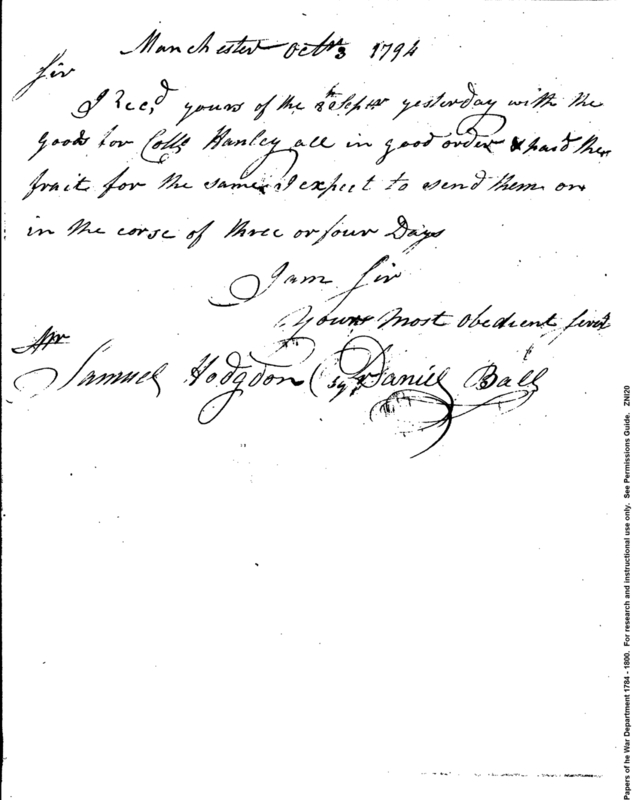 Manchester Octr 3 1794
Sir
I Recd yours of the yesterday with the
goods for Collo Hanley all in good order & paid the
frait for the same I expect to send them on
in the corse of three or four Days
I am Sir
Yours most obedient Servt
Mr
Samuel Hodgdon Esqr Daniel Ball
Papers of he War Department 1784 - 1800. For research and instructional use only. See Permissions Guide. ZNI20